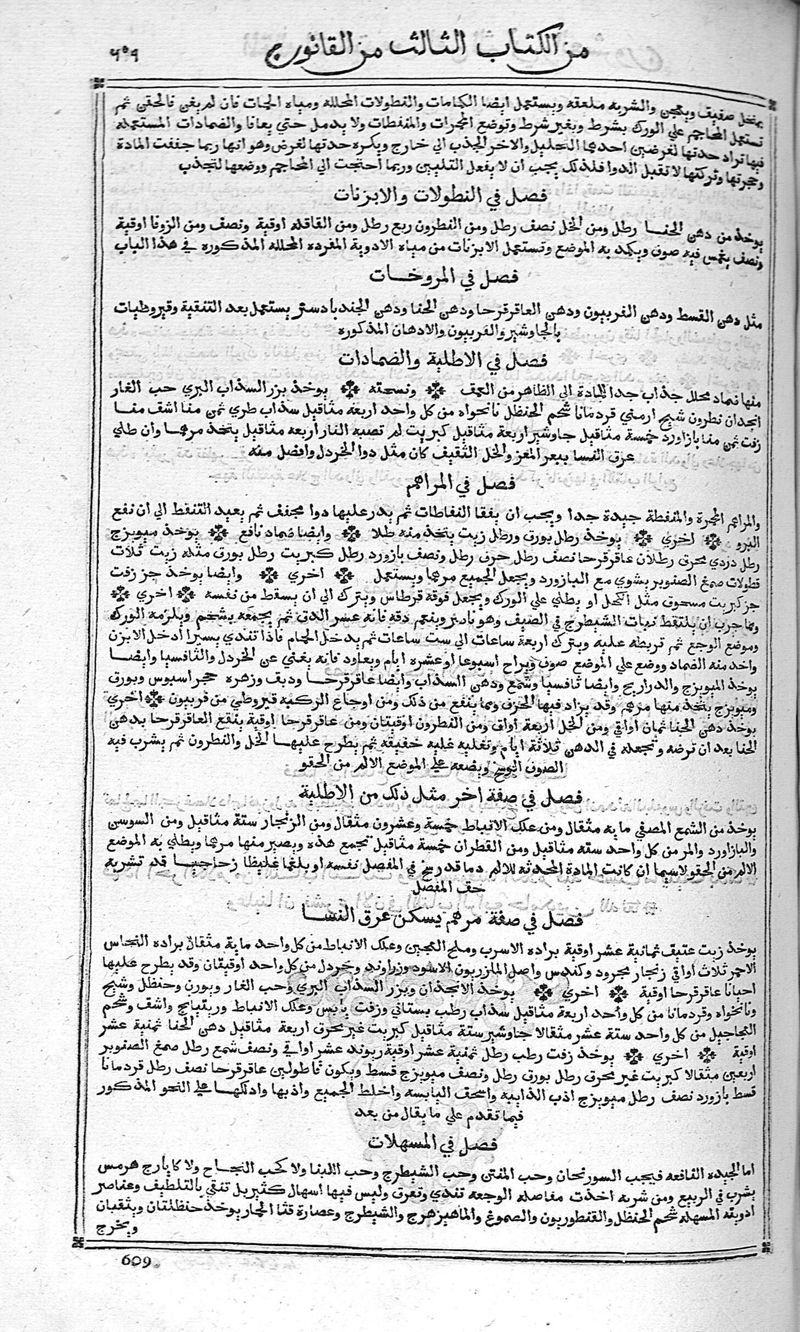 من الكتاب الثالث من القانون ج
٦٠٩
بمنخل صفيق ويعجن والشربه ملعقه ويستعمل ايضا الكمادات والنطولات المحلله ومياه الحمات فان لم يغن فالحقن ثم
تستعمل المحاجم علي الورك بشرط وبغير شرط وتوضع المحمرات والمنفطات ولا يدمل حتي يعافا والضمادات المستعمله
فيها تراد حدتها لغرضين احدهما التحليل والاخر الجذب الي خارج ويكره حدتها لغرض وهو انها ربما جففت المادة
وحجرتها وتركتها لا تقبل الدوا فلذلك يجب ان لا يغفل التليين وربما احتجت الي المحاجم ووضعها لتجذب
فصل في النطولات والابزنات
يوخذ من دهن الحنا رطل ومن الخل نصف رطل ومن النطرون ربع رطل ومن القاقله اوقية ونصف ومن الزوفا اوقية
ونصف يغمس فيه صوف ويكمد به الموضع وتستعمل الابزنات من مياه الادوية المفرده المحلله المذكوره في هذا الباب
فصل في المروخات
مثل دهن القسط ودهن الفربيون ودهن العاقرقرحا ودهن الحنا ودهن الجندبادستر يستعمل بعد التنقية وقيروطيات
بالجاوشير والفربيون والادهان المذكوره
فصل في الاطلية والضمادات
منها ضماد محلل جذاب جدا للمادة الي الظاهر من العمق ونسخته يوخذ بزر السذاب البري حب الغار
انجدان نطرون شيح ارمني قردمانا شحم الحنظل نانخواه من كل واحد اربعه مثاقيل سذاب طري ثمن منا اشق منا
زفت ثمن منا بازاورد خمسة مثاقيل جاوشير اربعة مثاقيل كبريت لم تصبه النار اربعه مثاقيل يتخذ مرهما وان طلي
عرق النسا ببعر المعز والخل الثقيف كان مثل دوا الخردل وافضل منه
فصل في المراهم
والمراهم المحمرة والمنفطة جيدة جدا ويجب ان يفقا النفاطات ثم يدر عليها دوا مجفف ثم يعيد التنفط الي ان يقع
البرو اخري يوخذ رطل بورق ورطل زيت يتخذ منه طلا وايضا ضماد نافع يوخذ ميويزج
رطل دردي محرق رطلان عاقرقرحا نصف رطل حرف رطل ونصف بازورد رطل كبريت رطل بورق مثله زيت ثلاث
قطولات صمغ الصنوبر يشوي مع البازورد ويجعل الجميع مرهما ويستعمل اخري وايضا يوخذ جز زفت
جز كبريت مسحوق مثل الكحل او يطلي علي الورك ويجعل فوقه قرطاس ويترك الي ان يسقط من نفسه اخري
ومما جرب ان يلتقط نبات الشيطرج في الصيف وهو ناضر وينعم دقه فانه عسر الدق ثم يجمعه بشحم ويلزمه الورك
وموضع الوجع ثم تربطه عليه ويترك اربعة ساعات الي ست ساعات ثم يدخل الحمام فاذا تندي يسيرا ادخل الابزن
واخد منه الضماد ووضع علي الموضع صوف ويراح اسبوعا او عشره ايام ويعاود فانه يغني عن الخردل والثافسيا وايضا
يوخذ الميويزج والدراريح وايضا ثافسيا وشمع ودهن السذاب وايضا عاقرقرحا وديف وزهره حجر اسيوس وبورق
وميويزج يتخذ منها مرهم وقد يزاد فيها الحرف ومما ينفع من ذلك ومن اوجاع الركبه قيروطي من فربيون اخري
يوخذ دهن الحنا ثمان اواقي ومن الخل اربعة اواق ومن النطرون اوقيتان ومن عاقرقرحا اوقية ينقع العاقرقرحا بدهن
الحنا بعد ان ترضه وتجعله في الدهن ثلاثة ايام وتغليه غليه خفيفه ثم يطرح عليهما الخل والنطرون ثم يشرب فيه
الصوف الوسخ ويضعه علي الموضع الالم من الحقو
فصل في صفة اخر مثل ذلك من الاطلية
يوخذ من الشمع المصفي مايه مثقال ومن علك الانباط خمسة وعشرون مثقال ومن الزنجار ستة مثاقيل ومن السوسن
والبازاورد والمر من كل واحد سته مثاقيل ومن القطران خمسة مثاقيل تجمع هذه ويصير منها مرهما ويطلي به الموضع
الالم من الحقو لاسيما ان كانت المادة المحدثه للالم دما قد رسخ في المفصل نفسه او بلغما غليظا زجاجيا قد تشربه
حق المفصل
فصل في صفة مرهم يسكن عرق النسا
يوخذ زيت عتيق ثمانية عشر اوقية براده الاسرب وملح العجين وعلك الانباط من كل واحد ماية مثقال براده النحاس
الاحمر ثلاث اواقي زنجار مجرود وكندس واصل المازريون الاسود وزراوند وخردل من كل واحد اوقيتان وقد يطرح عليها
احيانا عاقرقرحا اوقية اخري يوخذ الانجدان وبزر السذاب البري وحب الغار وبورن وحنظل وشيح
ونانخواه وقردمانا من كل واحد اربعة مثاقيل سذاب رطب بستاني وزفت يابس وعلك الانباط وريتيانج واشق وشحم
العجاجيل من كل واحد ستة عشر مثقالا جاوشير ستة مثاقيل كبريت غير محرق اربعة مثاقيل دهن الحنا ثمنية عشر
اوقية اخري يوخذ زفت رطب رطل ثمنية عشر اوقية ريوند عشر اواقي ونصف شمع رطل صمغ الصنوبر
اربعين مثقالا كبريت غير محرق رطل بورق رطل ونصف ميويزج قسط ويكون ثماطولين عاقرقرحا نصف رطل قردمانا
قسط بازورد نصف رطل ميويزج اذب الذايبة واسحق اليابسه واخلط الجميع واذبها وادلكها علي النحو المذكور
فيما تقدم علي ما يقال من بعد
فصل في المسهلات
اما الجيده النافعه فيجب السورنحان وحب المنتن وحب الشيطرج وحب اللبنا ولا كحب النجاح ولا كايارج هرمس
يشرب في الربيع ومن شربه اخذت مفاصله الوجعه تندي وتعرق وليس فيها اسهال كثير بل تنقي بالتلطيف وعناصر
ادويته المسهله شحم الحنظل والقنطوريون والصموغ والماهيزهرج والشيطرج وعصارة قثا الحمار يوخذ حنظلتان ويثقبان
ويخرج
609